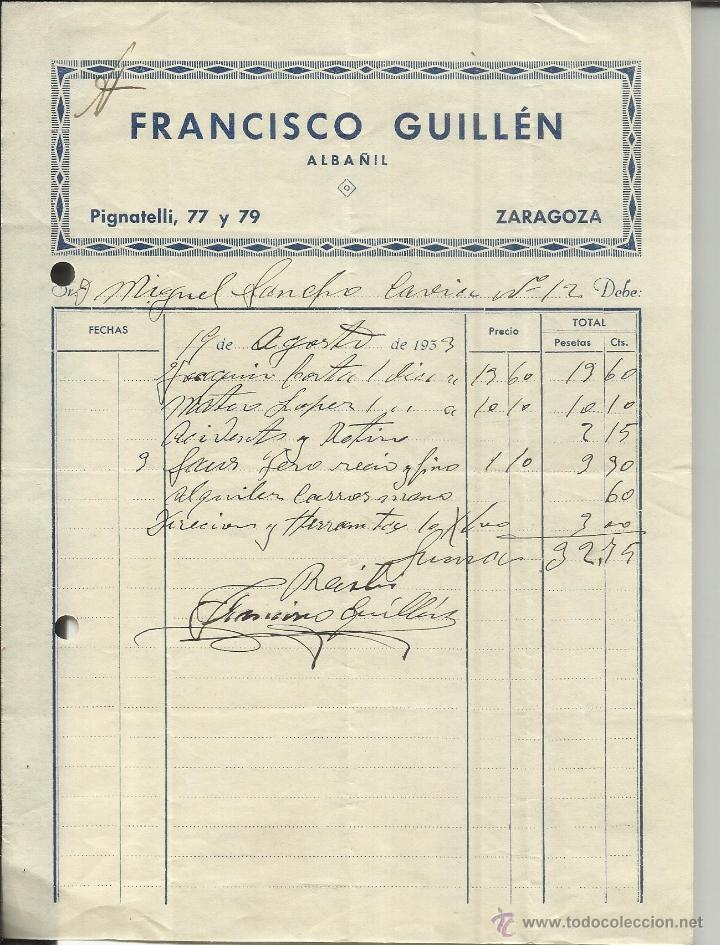 FRANCISCO GUILLÉN
ALBAÑIL
Pignatelli, 77 y 79 ZARAGOZA
Sr. D Miguel Sancho Nº 12 Debe:
FECHAS Precio TOTAL
Pesetas Cts.
19 de Agosto de 1933
Joaquin 1 dia a 19 60 19 60
Lopez 1 " " a 10 10 10 10
y Retiro 2 15
9 recio y fino 1 10 9 90
alquiler carros mano 60
Direcion y 10 X 3 00
Suma 32,75
Recibi
Francisco Guillén
www.todocoleccion.net